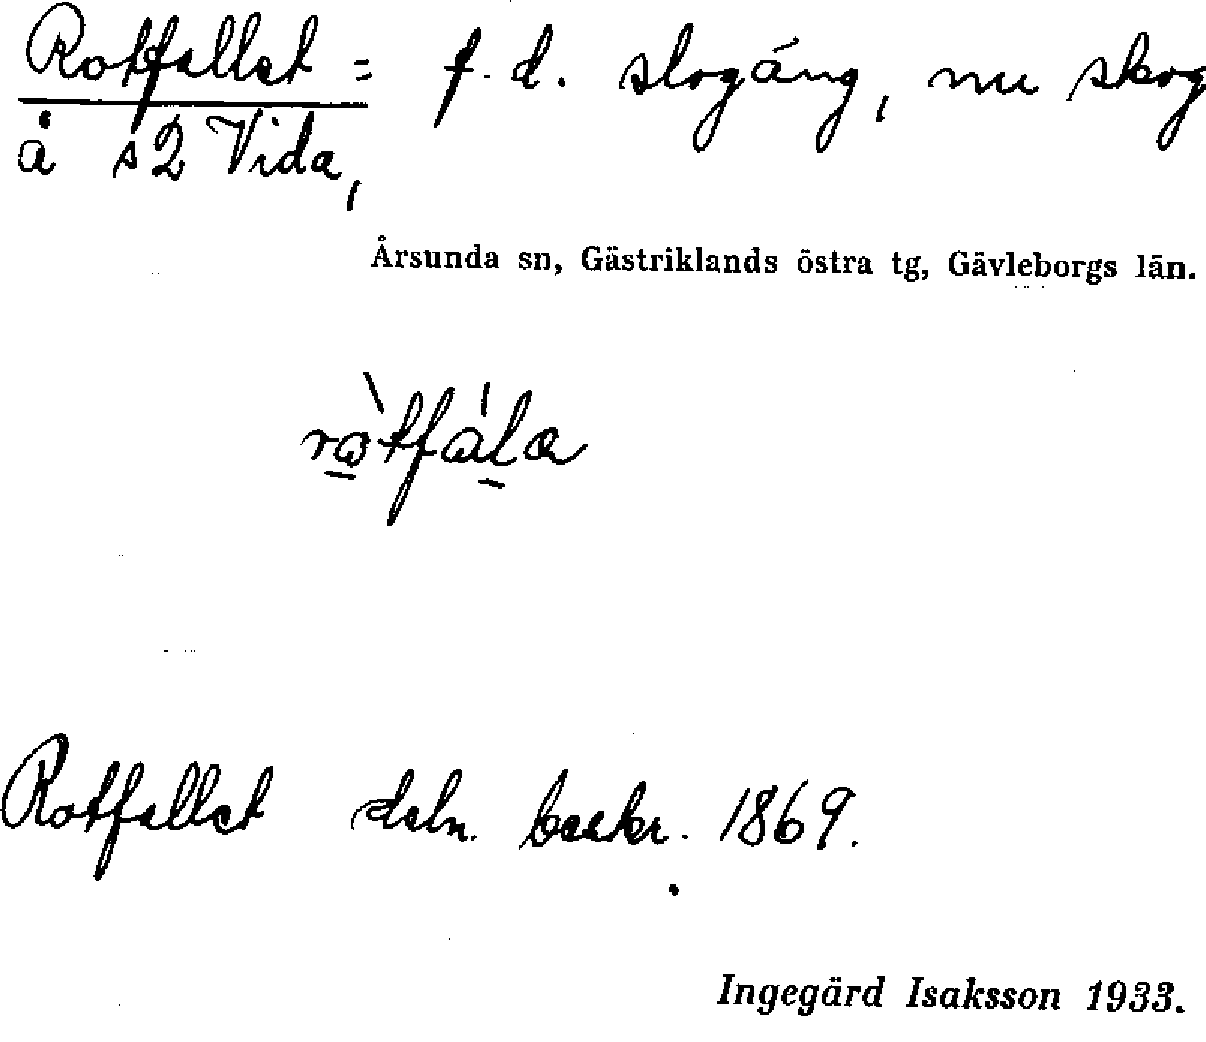 Rotfallet = f.d. slogäng, nu skog
å s2 Vida,
Årsunda sn, Gästriklands östra tg, Gävleborgs län.
ròtfála
Rotfallet deln. beskr. 1869.
Ingegärd Isaksson 1933.